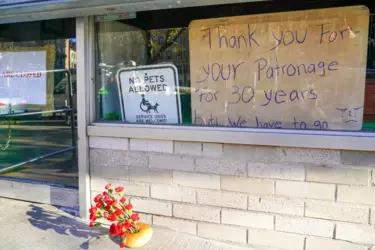 ARE CLOSED
NO PETS
ALLOWED
SERVICE DOGS
ARE WELCOME
Thank you For
your Patronage
for 30 years
but we have to go